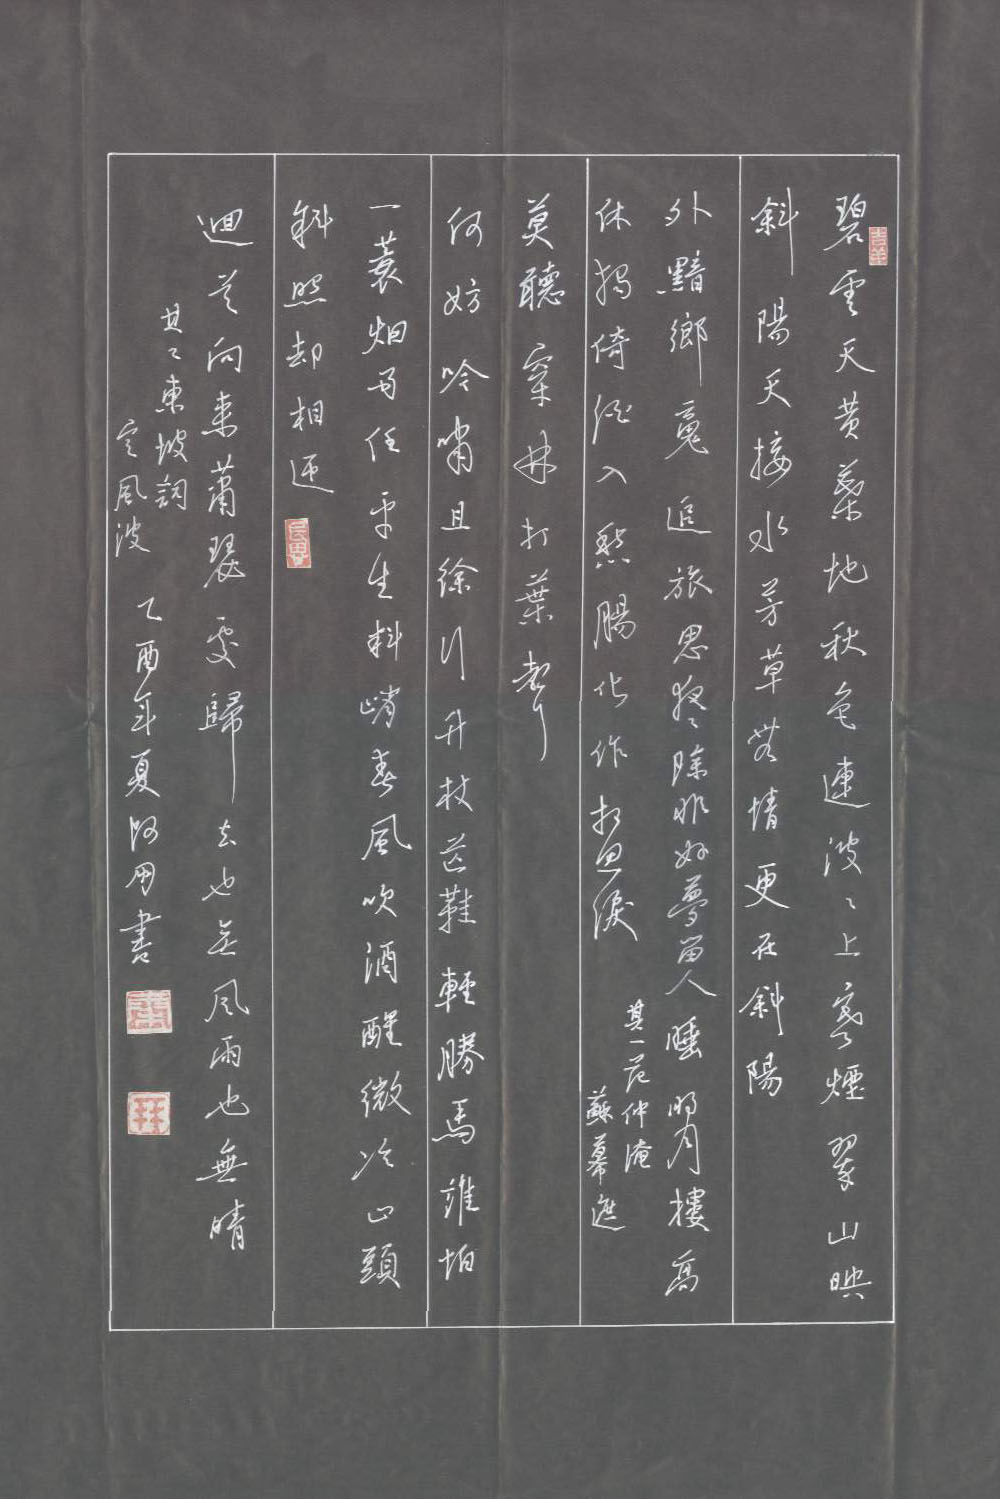 碧雲天黄葉地秋色連波〻上寒煙翠山映
斜陽天接水芳草無情更在斜陽
外黯鄉魂追旅思夜〻除非好夢留人睡明月樓高
休獨倚酒入愁腸化作相思淚
其一范仲淹
蘇幕遮
莫聽穿林打葉聲
何妨吟嘯且徐行竹杖芒鞋輕勝馬誰怕
一蓑烟雨任平生料峭春風吹酒醒微冷山頭
斜照却相迎
迴首向來蕭瑟處歸去也無風雨也無晴
其二東坡詞
定風波 乙酉年夏 書
吉羊